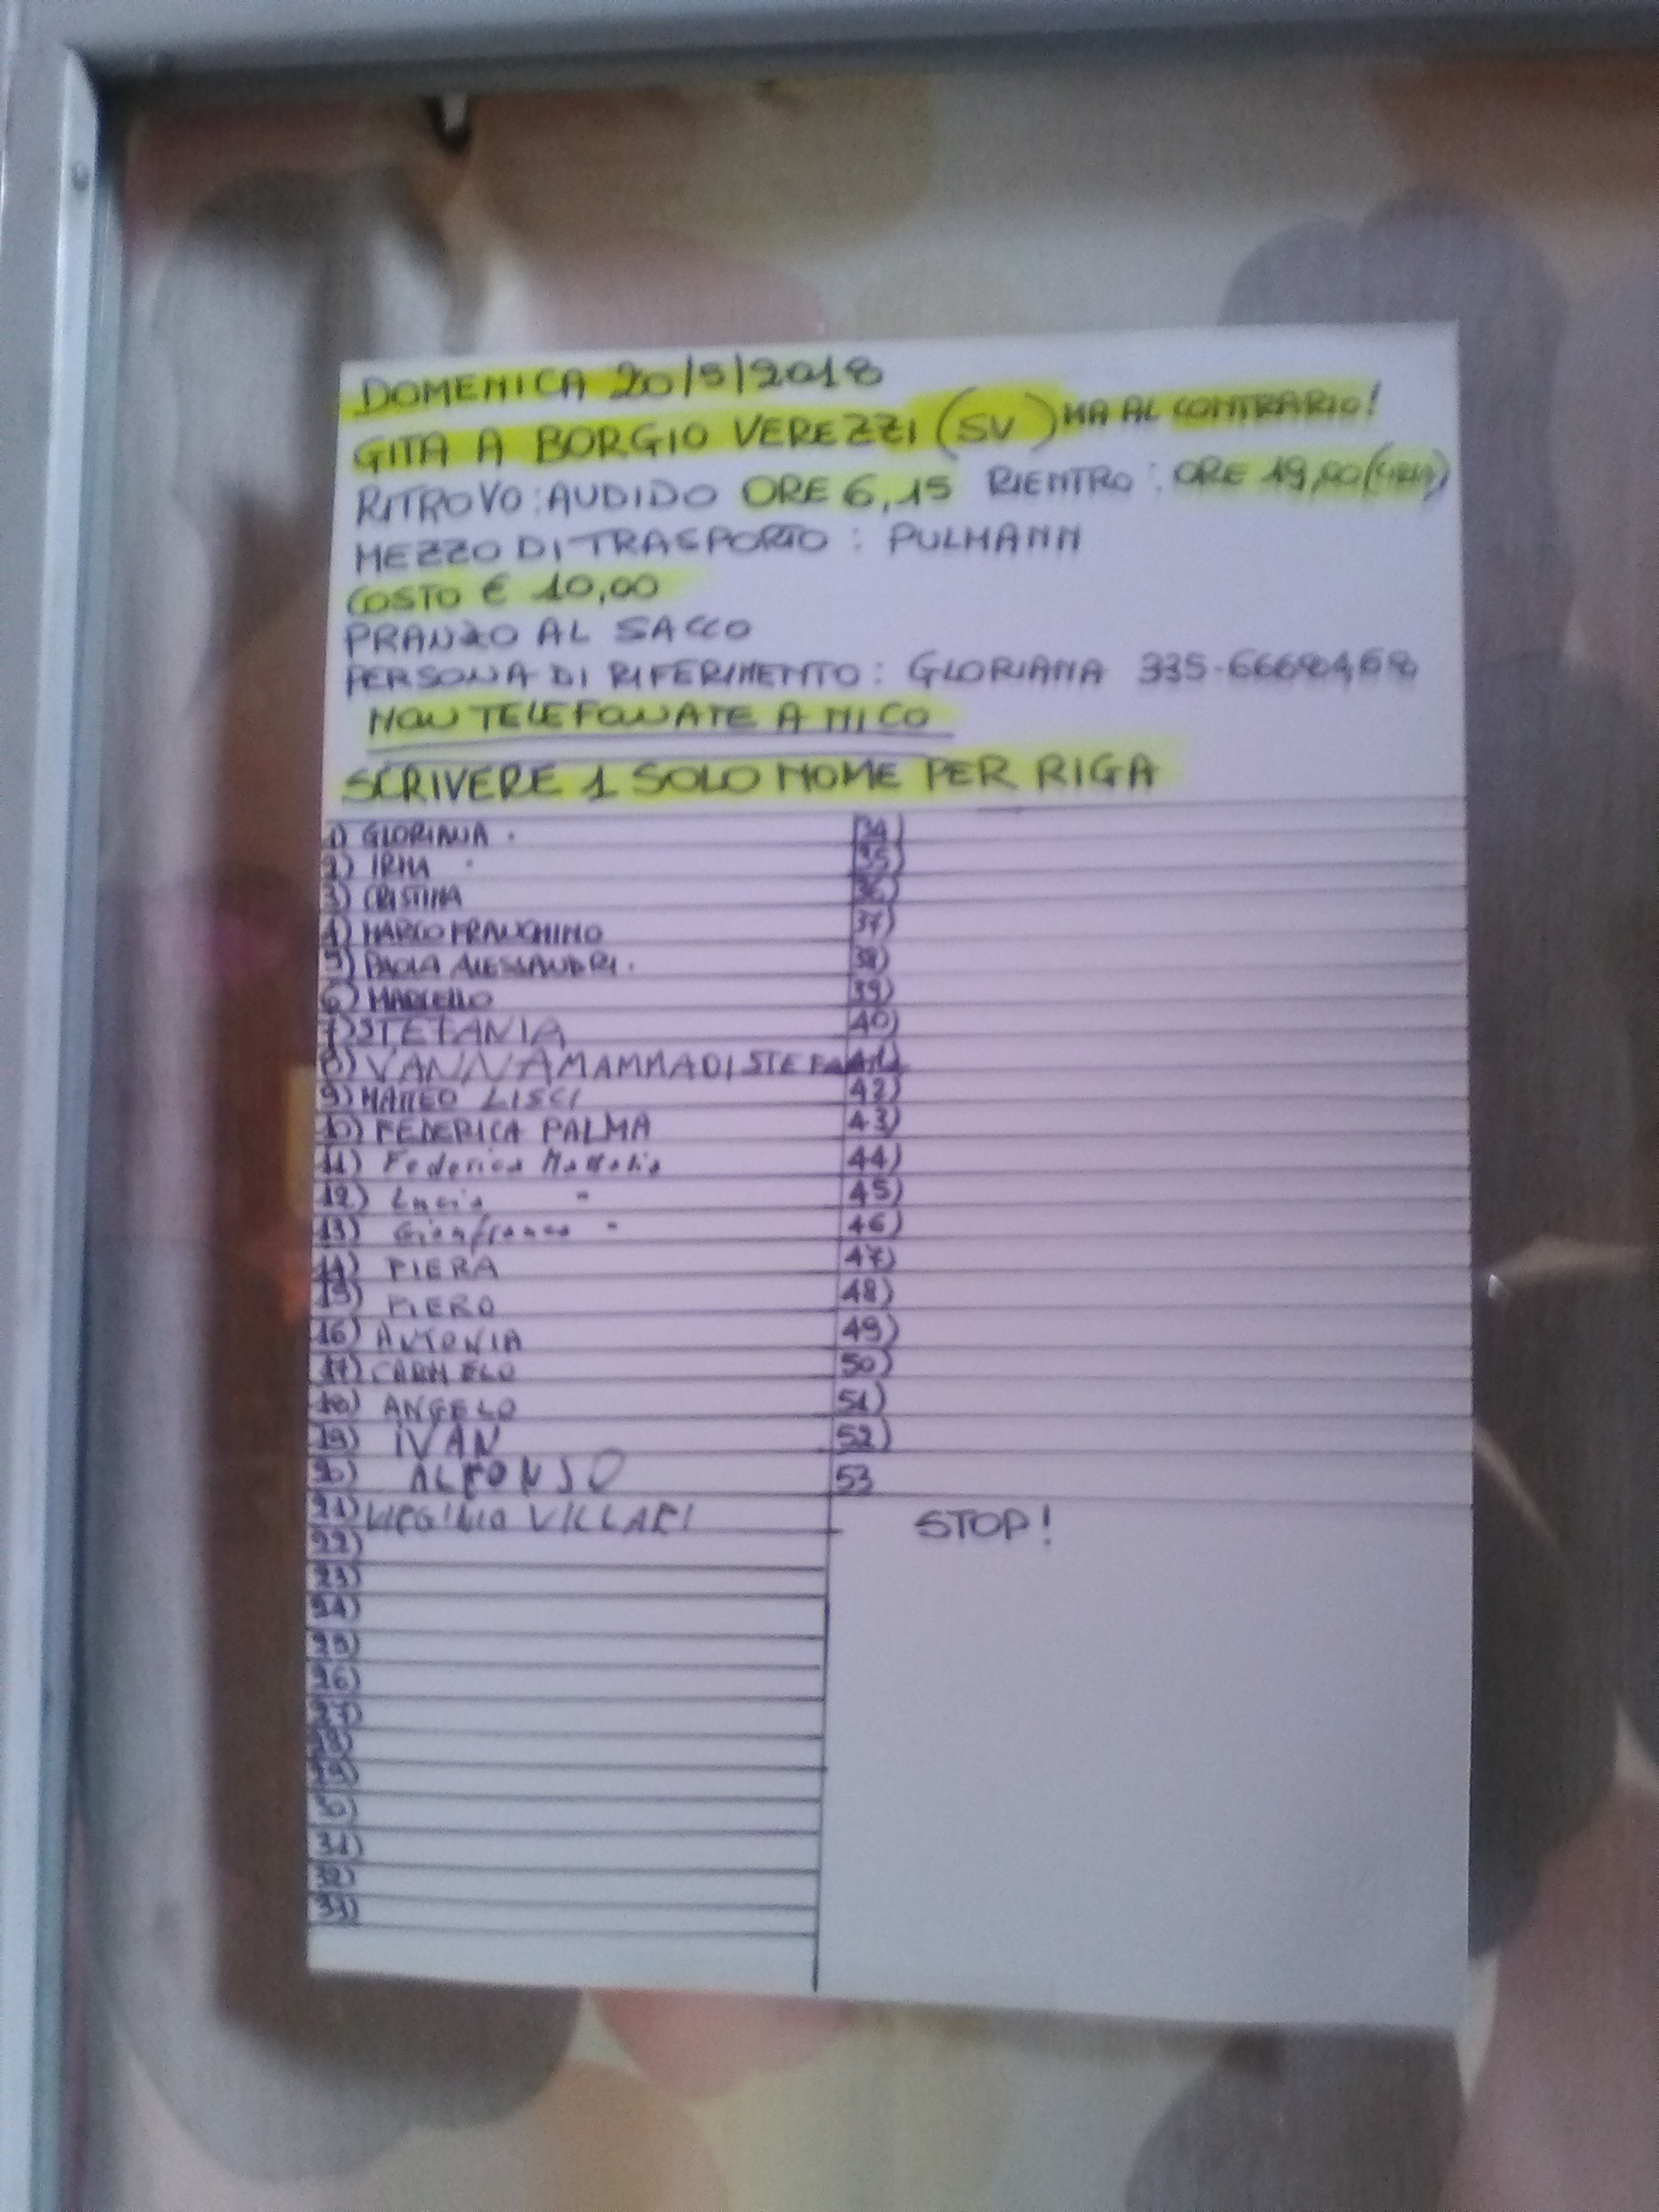 DOMENICA 20/5/2018
GITA A BORGIO VEREZZI (SV) MA AL CONTRARIO!
RITROVO: AUDIDO ORE 6,15 RIENTRO: ORE 19,00
MEZZO DI TRASPORTO: PULMANN
COSTO € 10,00
PRANZO AL SACCO
PERSONA DI RIFERIMENTO: GLORIANA
NON TELEFONATE A NICO
SCRIVERE 1 SOLO NOME PER RIGA
1) GLORIANA
2) IRMA
3) CRISTINA
4) MARCO FRANCHINO
5) PAOLA ALESSANDRI
6) MARCELLO
7) STEFANIA
8) VANNA MAMMA DI STEFANIA
9) MATTEO LISCI
10) FEDERICA PALMA
11) Federica
12) Lucia "
13) Gianfranco "
14) PIERA
15) PIERO
16) ANTONIA
17) CARMELO
18) ANGELO
19) IVAN
20) ALFONSO
21) VIRGINIO VILLARI
22)
23)
24)
25)
26)
27)
28)
29)
30)
31)
32)
33)
34)
35)
36)
37)
38)
39)
40)
41)
42)
43)
44)
45)
46)
47)
48)
49)
50)
51)
52)
53
STOP!